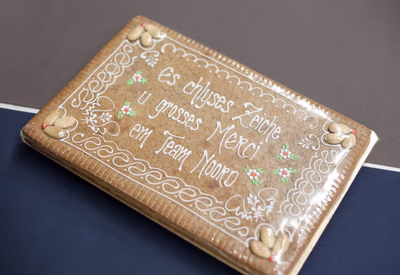 es chlyses Zeiche
u grosses Merci
em Team Noord